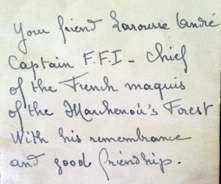 Your friend Larousse André
Captain F.F.I - chief
of the French maquis
of the Marchenoir's Forest
With his remembrance
and good friendship.